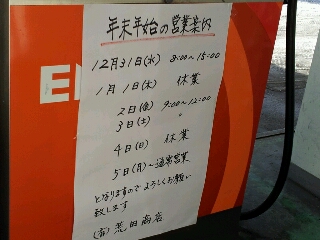 年末年始の営業案内
12月31日(水) 8:00~15:00
1月1日(木) 休業
2日(金) 9:00~12:00
3日(土) 〃
4日(日) 休業
5日(月)~通常営業
となりますのでよろしくお願い
致します
(有)荒田商店
E